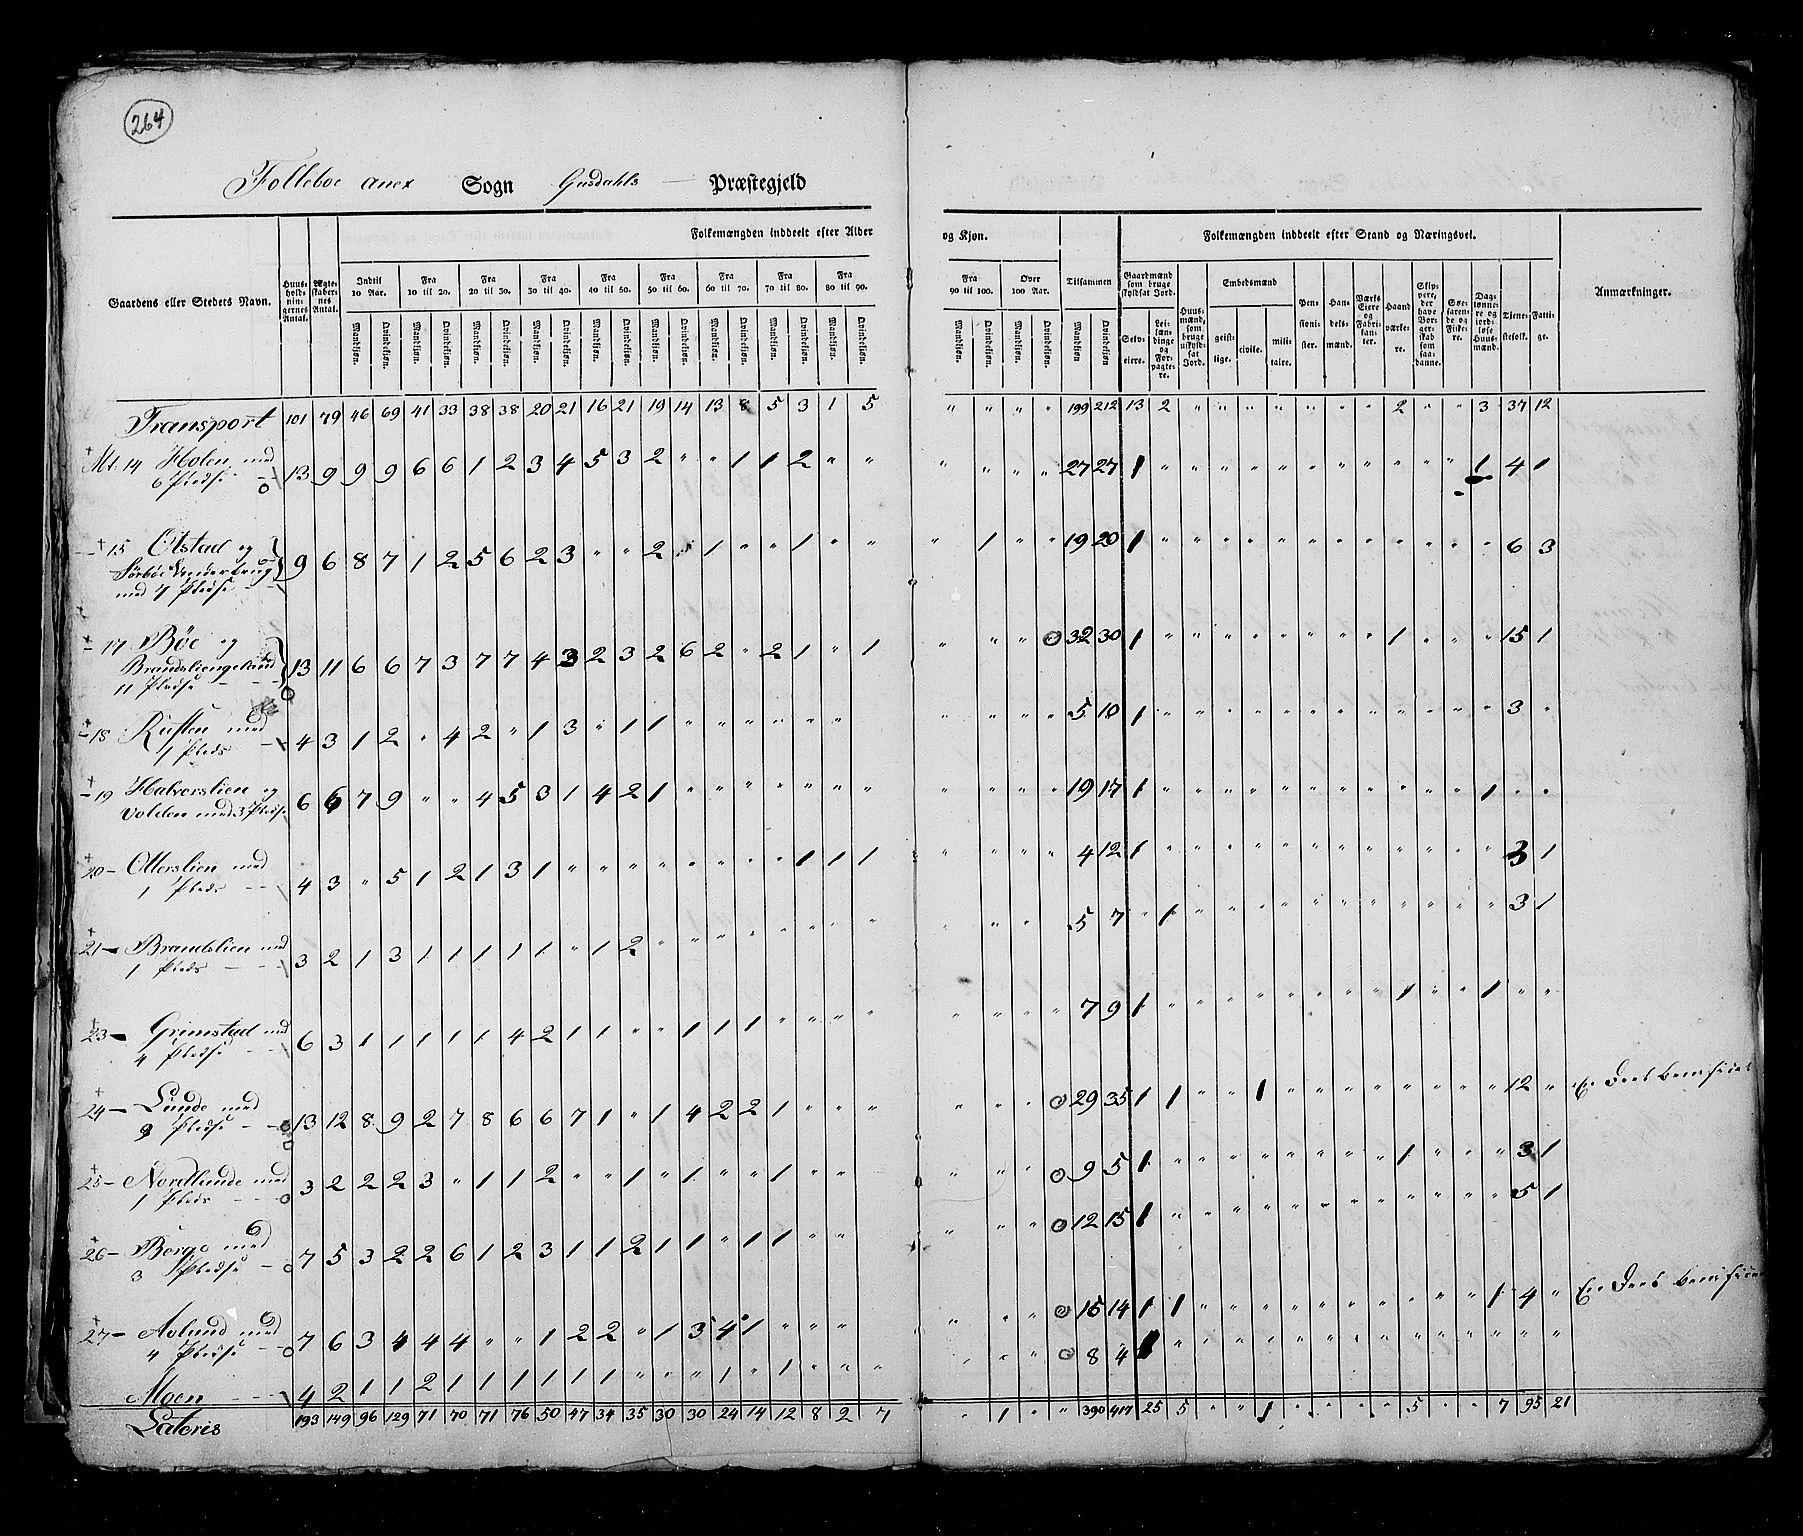 264
Folleboe anex Sogn Gusdahls Præstegjeld
Folkemængden inddeelt efter Alder og Kjøn. Folkemængden inddeelt efter Stand og Næringsvei.
Gaardens eller Stedets Navn. Huus-holdnin-gernes Antal. Ægte-skaber-nes Antal. Indtil 10 Aar. Fra 10 til 20. Fra 20 til 30. Fra 30 til 40. Fra 40 til 50. Fra 50 til 60. Fra 60 til 70. Fra 70 til 80. Fra 80 til 90. Fra 90 til 100. Over 100 Aar. Tilsammen Gaardmænd som bruge skyldsat Jord. Huus-mænd, som bruge uskyld-sat Jord. Embedsmænd Pen-sioni-ster. Han-dels-mænd. Værks Eiere og Fabri-kan-ter. Haand-værke-re. Skip-pere, der have Bor-ger-skab som saa-danne. Søe-faren-de og Fiske-re. Dag-lønne-re og jord-løse Huus-mænd. Tjene-stefolk. Fatti-ge. Anmærkninger.
Mandkjøn. Qvindekjøn. Mandkjøn. Qvindekjøn. Mandkjøn. Qvindekjøn. Mandkjøn. Qvindekjøn. Mandkjøn. Qvindekjøn. Mandkjøn. Qvindekjøn. Mandkjøn. Qvindekjøn. Mandkjøn. Qvindekjøn. Mandkjøn. Qvindekjøn. Mandkjøn. Qvindekjøn. Mandkjøn. Qvindekjøn. Mandkjøn Qvindekjøn Selv-eiere. Lei-læn-dinge og For-pagte-re. geist-lige. civile. mili-taire.
Transport 101 79 46 69 41 33 38 38 20 21 16 21 19 14 13 8 5 3 1 5 " " " " 199 212 13 2 " " " " " " " 2 " " 3 37 12
Mt. 14 Holen med 13 9 9 9 6 6 1 2 3 4 5 3 2 " " 1 1 2 " " " " " " 27 27 1 " " " " " " " " " " " 1 4 1
6 Pladse
15 Olstad og 9 6 8 7 1 2 5 6 2 3 " " 2 " 1 " " 1 " " " 1 " " 19 20 1 " " " " " " " " " " " " 6 3
Sørbøe Underbrug
med 4 Pladse
17 Bøe og 13 11 6 6 7 3 7 7 4 3 2 3 2 6 2 " 2 1 " 1 " " " 32 30 1 " " " " " " " " 1 " " " 15 1
Brandsliengeland
11 Pladse
18 Rusten med 4 3 1 2 " 4 2 " 1 3 " 1 1 " " " " " " " " " " 5 10 1 " " " " " " " " " " " " 3 "
1 Plads
19 Halvorslien og 6 6 7 9 " " 4 5 3 1 4 2 1 " " " " " " " " " " " 19 17 1 " " " " " " " " " " " 1 " "
Volden med 3 Pladse
20 Otterslien med 4 3 " 5 1 2 1 3 1 " " " " " " " " 1 1 1 " " " " 4 12 1 " " " " " " " " " " " " 3 1
1 Plads
21 Brandslien med 3 2 1 3 1 1 1 1 1 " 1 2 " " " " " " " " " " " 5 7 " 1 " " " " " " " " " " " 3 1
1 Plads
23 Grimstad med 6 3 1 1 1 1 1 4 2 1 1 " " 1 1 1 " " " " " " " " 7 9 1 " " " " " " " " 1 " " 1 " "
4 Pladse
24 Lunde med 13 12 8 9 2 7 8 6 6 7 1 " 1 4 2 2 1 " " " " " " 29 35 1 1 " " 1 " " " " " " " " 12 "
9 Pladse
25 Nordlunde med 3 2 2 2 3 " 1 1 2 " " 1 " 1 " " 1 " " " " " 9 5 1 " " " " " " " " 1 " " " 3 1
1 Plads
26 Berge med 7 5 3 2 2 6 1 2 3 1 1 2 1 1 " 1 1 " " " " " 12 15 1 " " " " " " " " " " " " 5 1
3 Pladse
27 Avlund med 7 6 3 4 4 4 " " 1 2 2 " 1 3 4 1 " " " " " " 15 14 1 1 " " " " " " " " " " 1 4 "
4 Pladse
Moen 4 2 1 1 2 1 1 1 1 1 1 " " " 1 " 1 " " " " " " 8 4 1 " " " " " " " " " " " " " "
Lateris 193 149 96 129 71 70 71 76 50 47 34 35 30 30 24 14 12 8 2 7 " 1 " " 390 417 25 5 " " 1 " " " " 5 " " 7 95 21